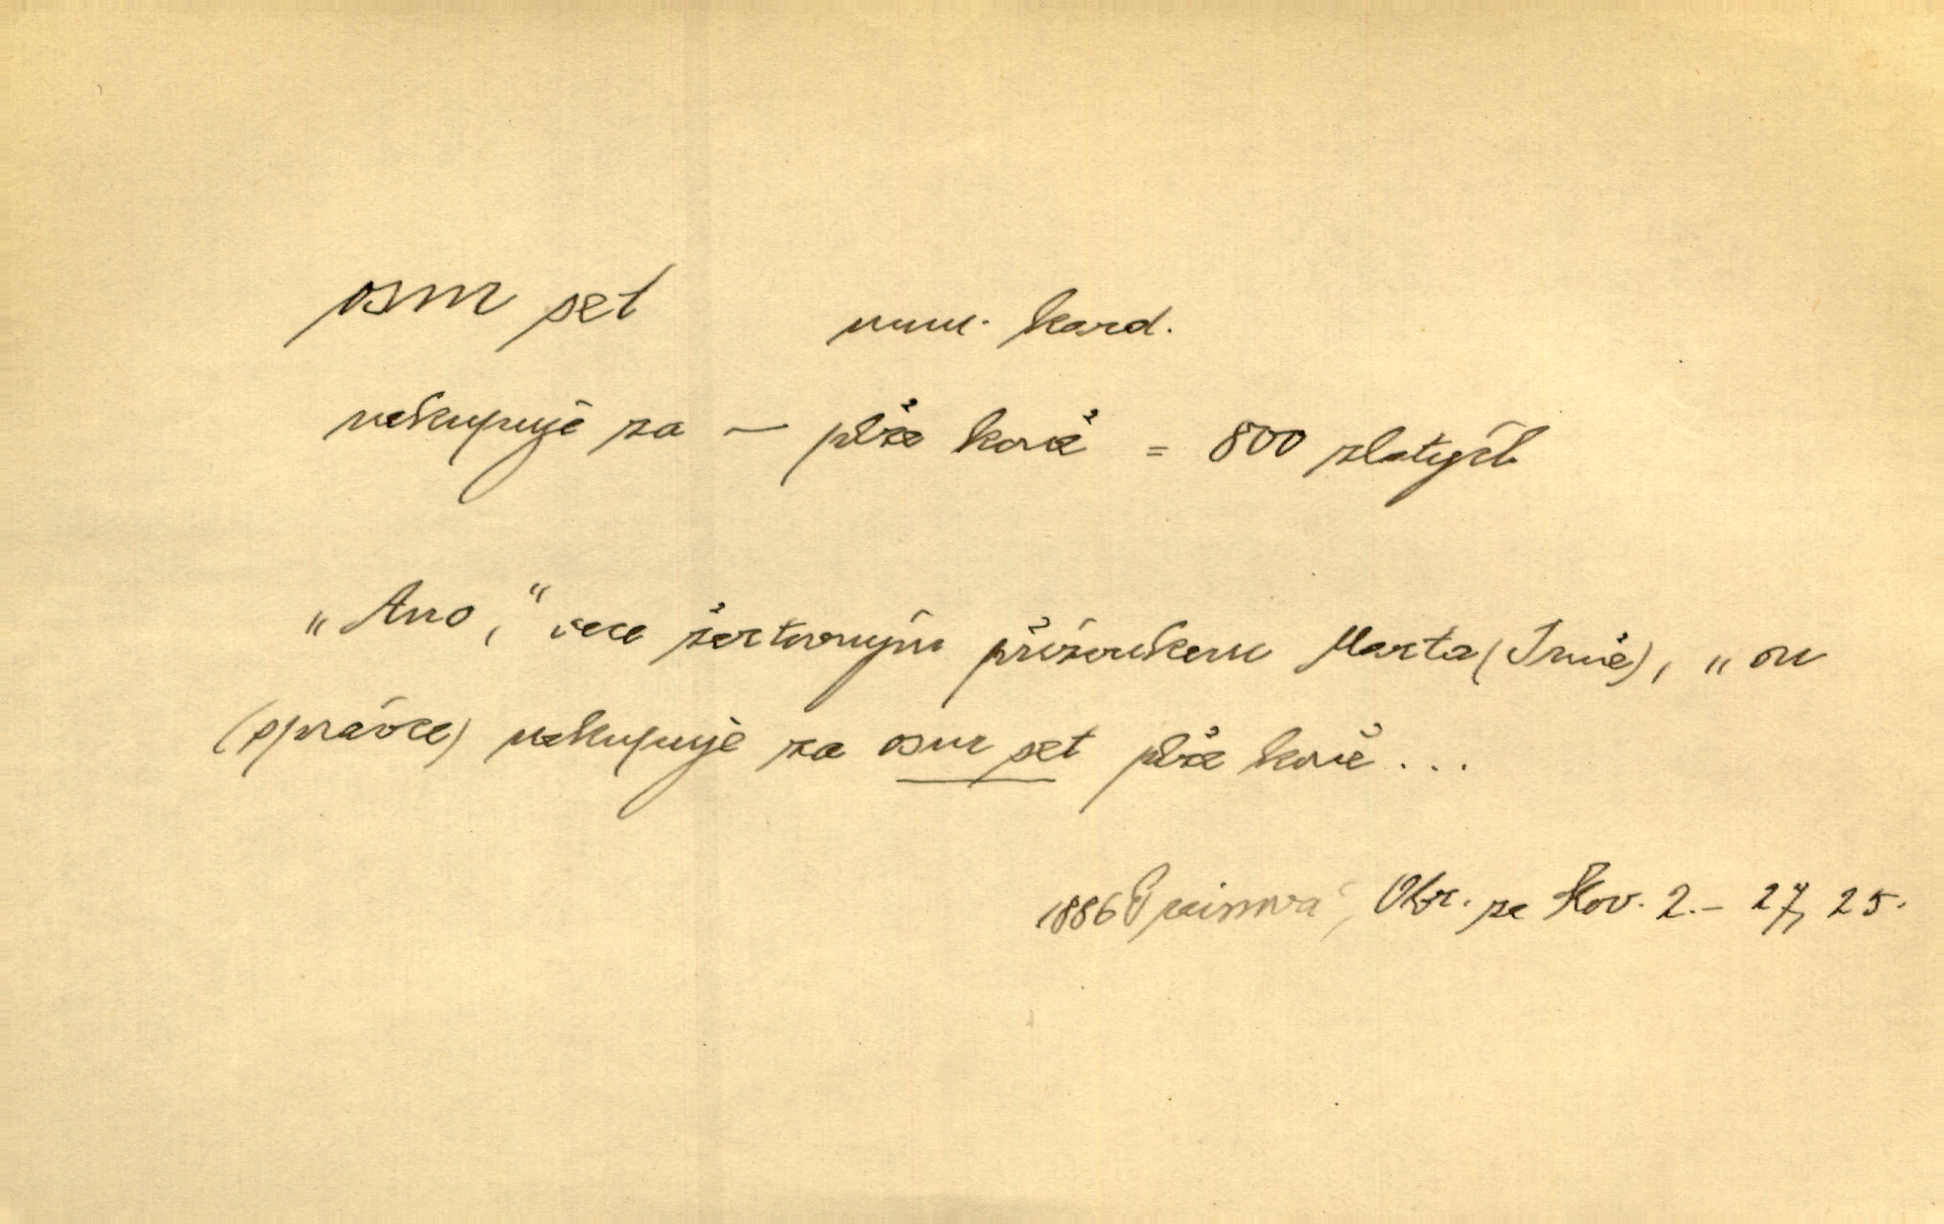 osm set num. kard.
nekupuje za — níže koně = 800 zlatých
„Ano,“ vece žertovným přízvukem Marta (Irmě), „on
(správce) nekupuje za osm set níže koně ...
1886 Preissová, Obr. ze Slov. 2. – 27, 25.